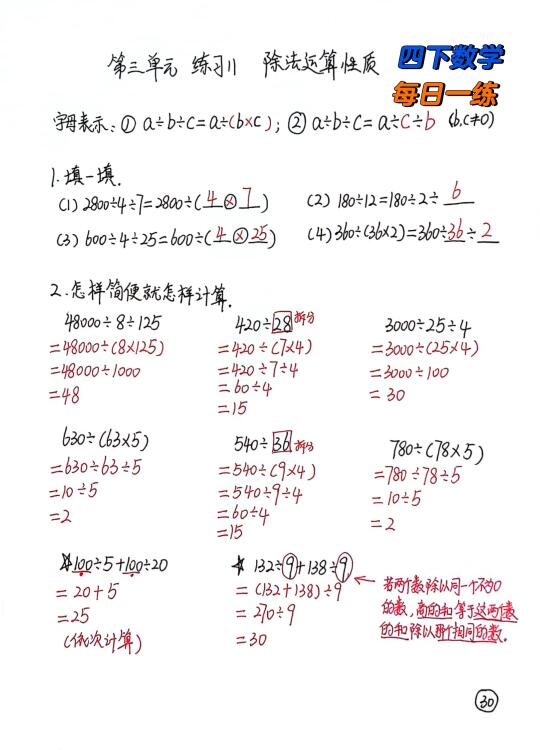 第三单元 练习11 除法运算性质
四下数学
每日一练
字母表示：① a÷b÷c=a÷(b×c)；② a÷b÷c=a÷c÷b (b,c≠0)
1.填一填.
(1) 2800÷4÷7=2800÷(4 × 7) (2) 180÷12=180÷2÷6
(3) 600÷4÷25=600÷(4 × 25) (4) 360÷(36×2)=360÷36÷2
2.怎样简便就怎样计算.
48000÷8÷125
=48000÷(8×125)
=48000÷1000
=48
420÷28 拆分
=420÷(7×4)
=420÷7÷4
=60÷4
=15
3000÷25÷4
=3000÷(25×4)
=3000÷100
=30
630÷(63×5)
=630÷63÷5
=10÷5
=2
540÷36 拆分
=540÷(9×4)
=540÷9÷4
=60÷4
=15
780÷(78×5)
=780÷78÷5
=10÷5
=2
☆100÷5+100÷20
=20+5
=25
(依次计算)
★ 132÷9+138÷9
=(132+138)÷9
=270÷9
=30
← 若两个数除以同一个不为0
的数，商的和等于这两个数
的和除以那个相同的数。
30